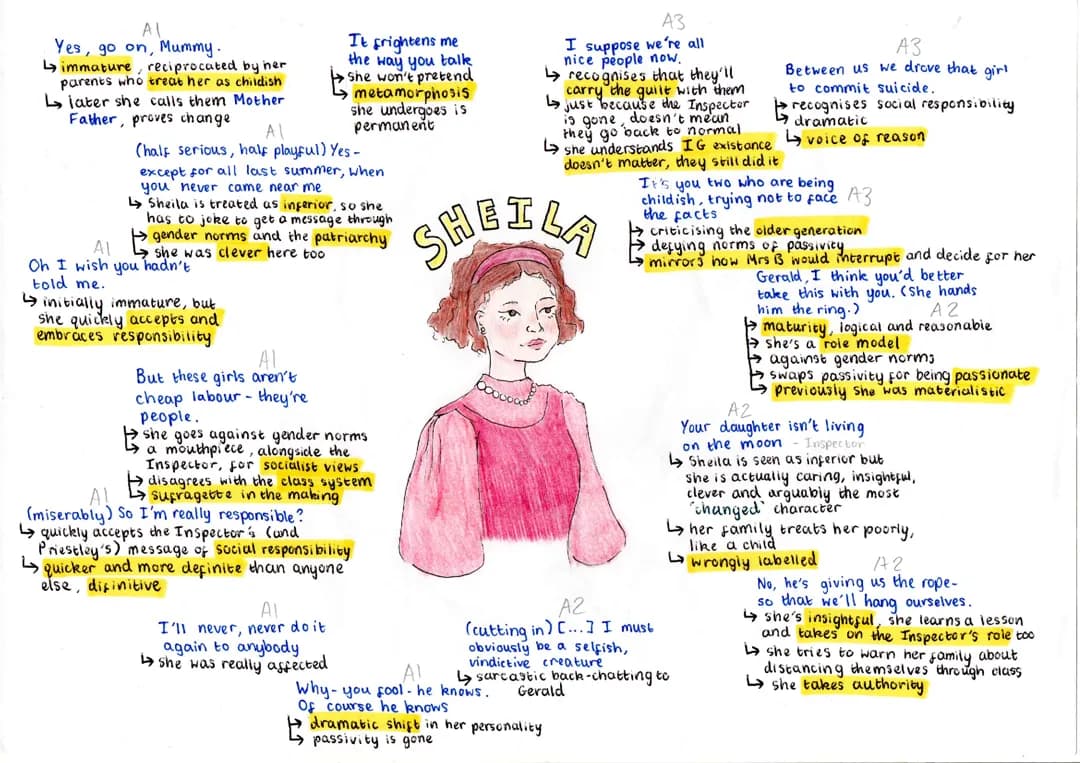 A1
Yes, go on, Mummy.
↳ immature, reciprocated by her
parents who treat her as childish
↳ later she calls them Mother
Father, proves change
It frightens me
the way you talk
↳ she won't pretend
↳ metamorphosis
she undergoes is
permanent
A3
I suppose we're all
nice people now.
↳ recognises that they'll
carry the guilt with them
↳ just because the Inspector
is gone, doesn't mean
they go back to normal
↳ she understands IG existance
doesn't matter, they still did it
A3
Between us we drove that girl
to commit suicide.
↳ recognises social responsibility
↳ dramatic
↳ voice of reason
A1
(half serious, half playful) Yes -
except for all last summer, when
you never came near me
↳ Sheila is treated as inferior, so she
has to joke to get a message through
↳ gender norms and the patriarchy
↳ she was clever here too
SHEILA
It's you two who are being
childish, trying not to face A3
the facts
↳ criticising the older generation
↳ defying norms of passivity
↳ mirrors how Mrs B would interrupt and decide for her
A1
Oh I wish you hadn't
told me.
↳ initially immature, but
she quickly accepts and
embraces responsibility
Gerald, I think you'd better
take this with you. (She hands
him the ring.) A2
↳ maturity, logical and reasonable
↳ she's a role model
↳ against gender norms
↳ swaps passivity for being passionate
↳ previously she was materialistic
A1
But these girls aren't
cheap labour - they're
people.
↳ she goes against gender norms
↳ a mouthpiece, alongside the
Inspector, for socialist views
↳ disagrees with the class system
↳ sufragette in the making
A2
Your daughter isn't living
on the moon - Inspector
↳ Sheila is seen as inferior but
she is actually caring, insightful,
clever and arguably the most
'changed' character
↳ her family treats her poorly,
like a child
↳ wrongly labelled
A1
(miserably) So I'm really responsible?
↳ quickly accepts the Inspector's (and
Priestley's) message of social responsibility
↳ quicker and more definite than anyone
else, difinitive
A2
No, he's giving us the rope-
so that we'll hang ourselves.
↳ she's insightful, she learns a lesson
and takes on the Inspector's role too
↳ she tries to warn her family about
distancing themselves through class
↳ she takes authority
A1
I'll never, never do it
again to anybody
↳ she was really affected
A2
(cutting in) [...] I must
obviously be a selfish,
vindictive creature
↳ sarcastic back-chatting to
Gerald
A1
Why- you fool - he knows.
Of course he knows
↳ dramatic shift in her personality
↳ passivity is gone